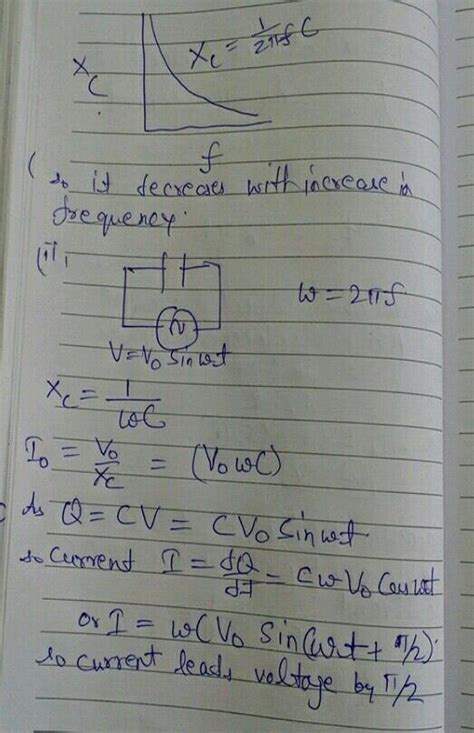 X_C = 1/2πfC
X_C
f
( so it decreases with increase in
frequency.
(ii)
ω = 2πf
V=V₀ Sin ωt
X_C = 1/ωC
I₀ = V₀/X_C = (V₀ωC)
As Q = CV = CV₀ Sin ωt
so current I = dQ/dt = CωV₀ Cos ωt
or I = ωCV₀ Sin(ωt + π/2).
so current leads voltage by π/2